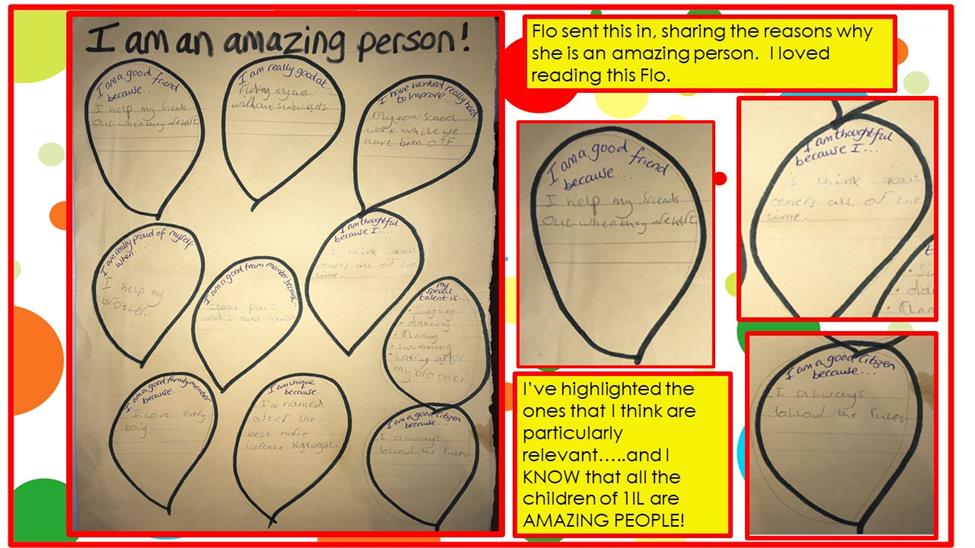 I am an amazing person!
I am a good
friend
because...
I help my friends
out when they are hurt
I am really good at
without stabilisers
I have worked really hard
to improve
My home school
work while we
have been off
I am really proud of myself
when...
I help my
brother.
I am a good team member because...
I take part
and I take
I am thoughtful
because I...
I think about
others all of the
time.
My
special
talent is...
• singing
• dancing
• running
• swimming
• looking after
my brother
I am a good family member
because...
I love every
I am unique
because
I'm named
after the
best nurse
Florence Nightingale.
I am a good citizen
because...
I always
follow the rules
Flo sent this in, sharing the reasons why
she is an amazing person.  I loved
reading this Flo.
I am a good
friend
because...
I help my friends
out when they are hurt
I am thoughtful
because I...
I think about
others all of the
time.
I've highlighted the
ones that I think are
particularly
relevant.....and I
KNOW that all the
children of 1IL are
AMAZING PEOPLE!
I am a good citizen
because...
I always
follow the rules